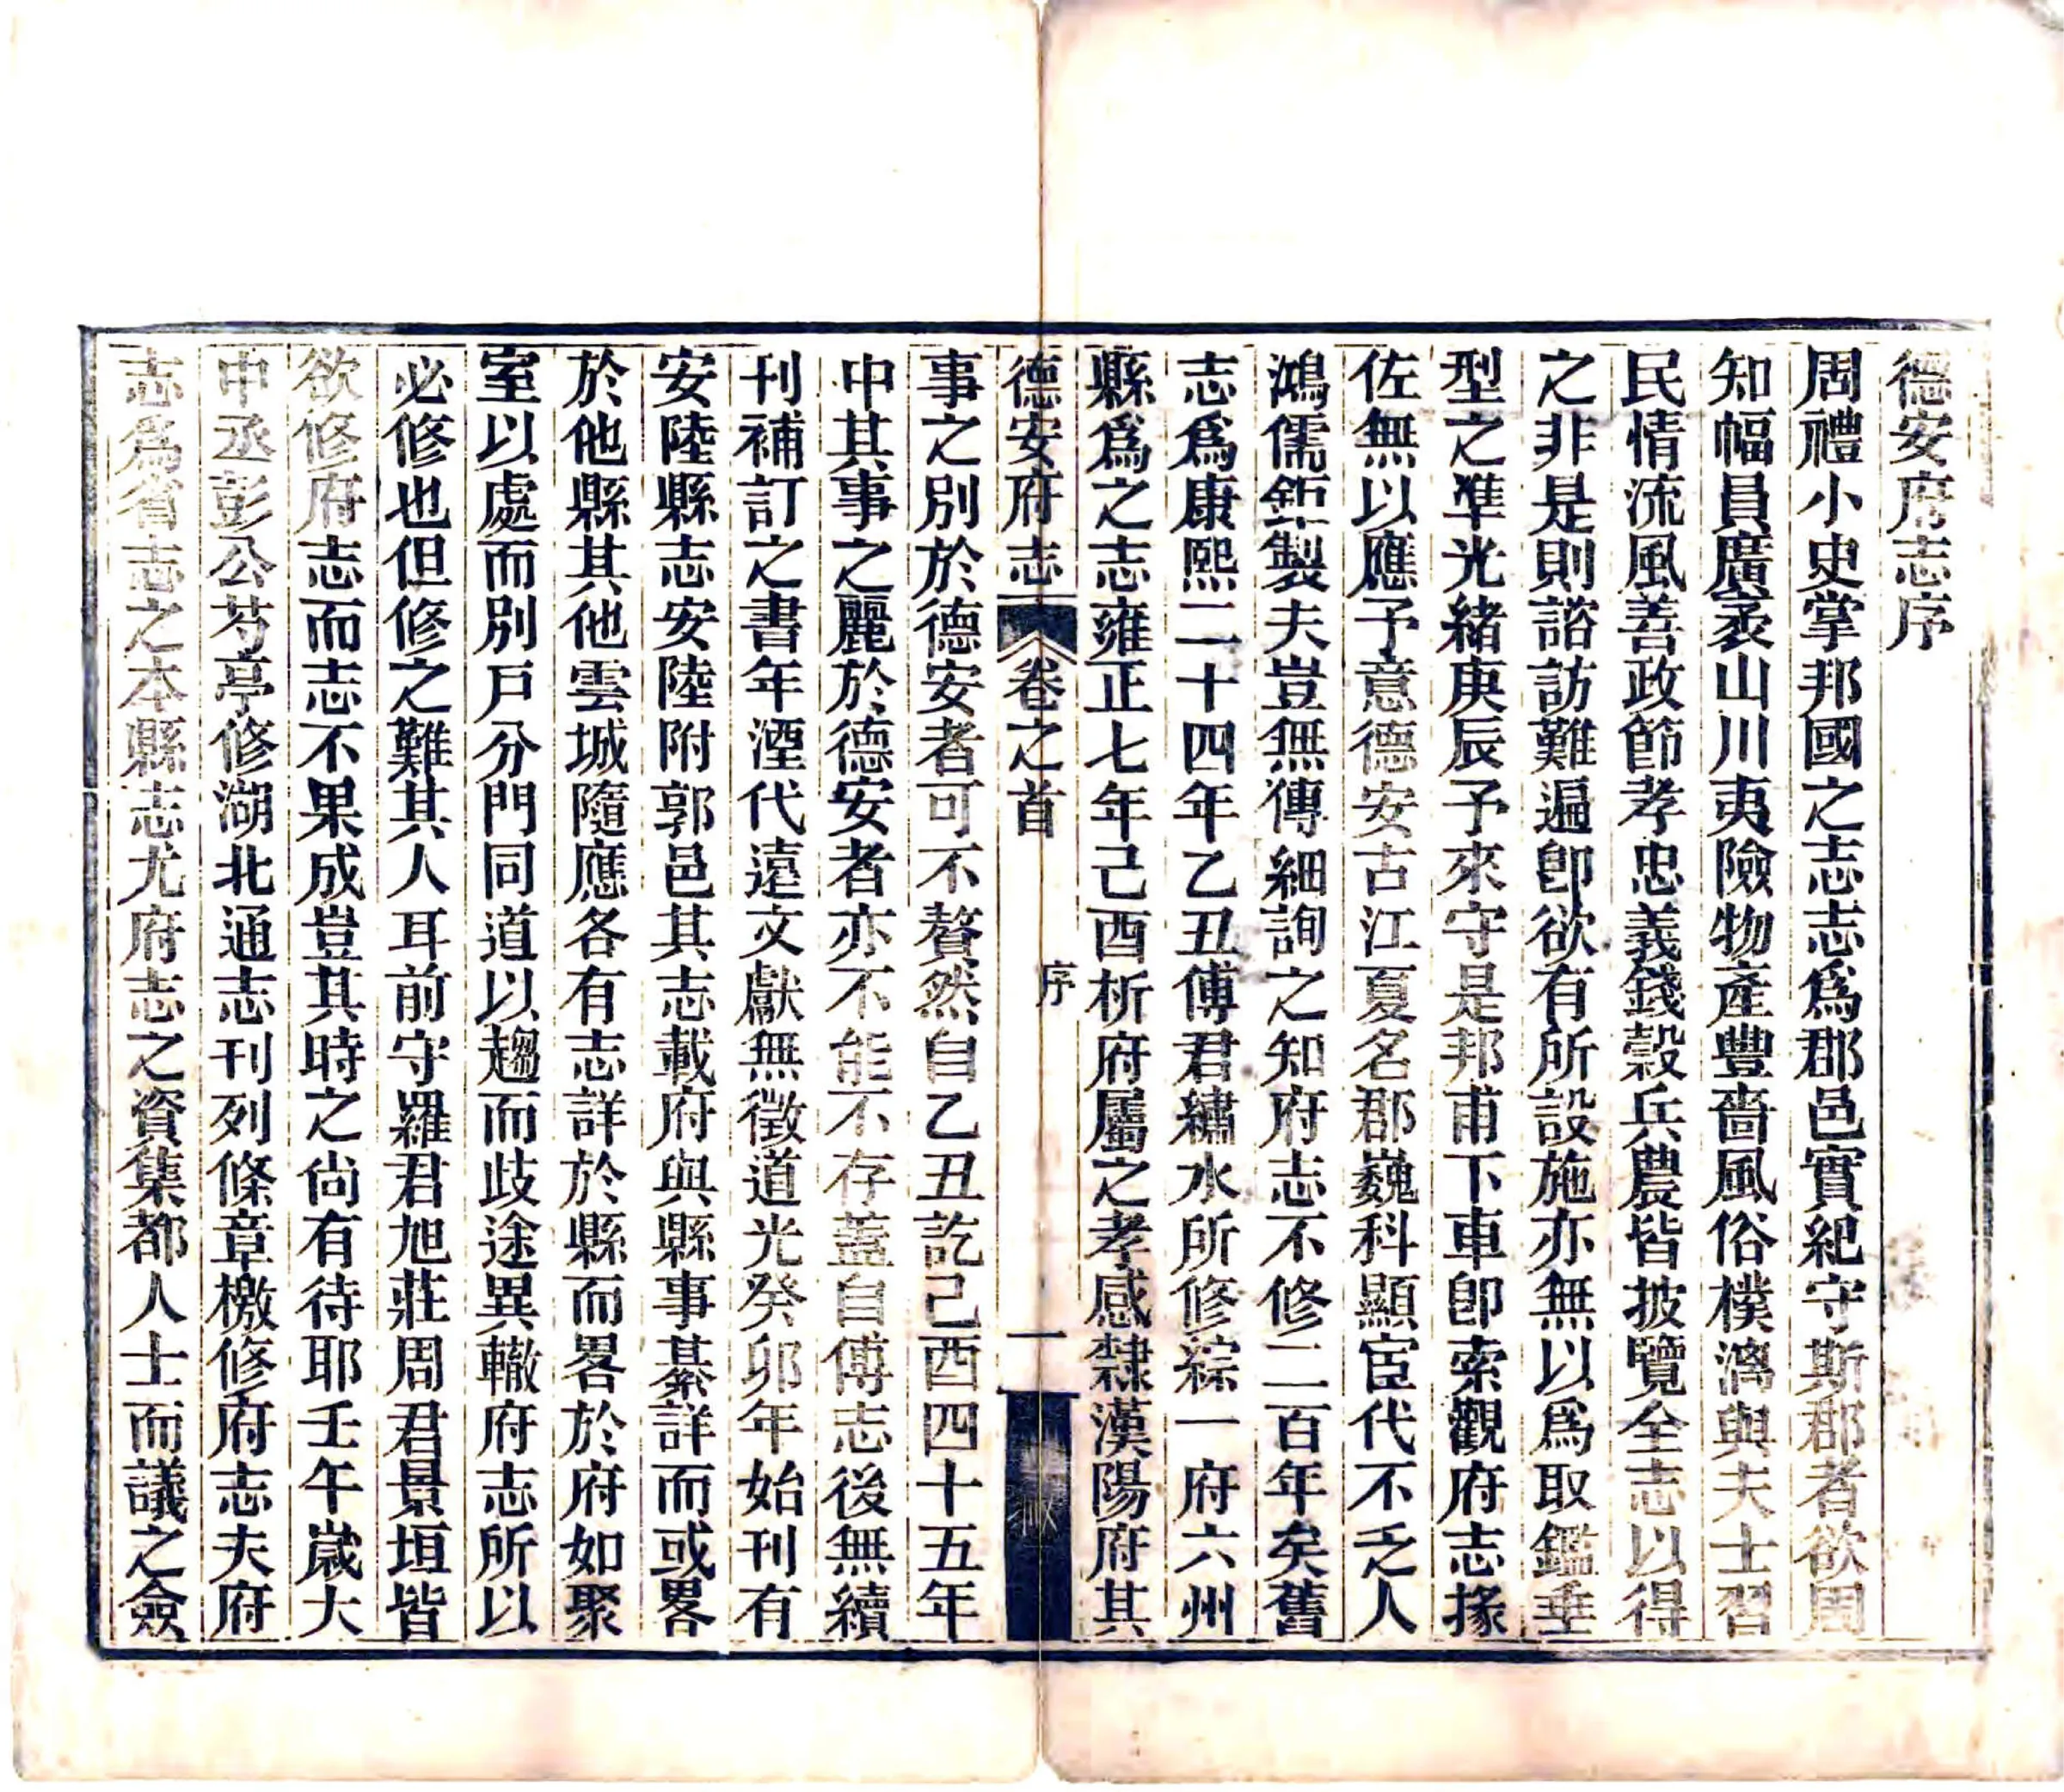 德安府志序
周禮小史掌邦國之志志爲郡邑實紀守斯郡者欲周
知幅員廣袤山川夷險物產豐嗇風俗樸漓與夫士習
民情流風善政節孝忠義錢穀兵農皆披覽全志以得
之非是則諮訪難遍卽欲有所設施亦無以爲取鑑垂
型之準光緒庚辰予來守是邦甫下車卽索觀府志掾
佐無以應予意德安古江夏名郡巍科顯宦代不乏人
鴻儒鉅製夫豈無傳細詢之知府志不修二百年矣舊
志爲康熙二十四年乙丑傅君繡水所修綜一府六州
縣爲之志雍正七年己酉析府屬之孝感隸漢陽府其
德安府志 卷之首 序 一
事之別於德安者可不贅然自乙丑訖己酉四十五年
中其事之麗於德安者亦不能不存蓋自傅志後無續
刊補訂之書年湮代遠文獻無徵道光癸卯年始刊有
安陸縣志安陸附郭邑其志載府與縣事綦詳而或畧
於他縣其他雲城隨應各有志詳於縣而畧於府如聚
室以處而別戶分門同道以趨而歧途異轍府志所以
必修也但修之難其人耳前守羅君旭莊周君景垣皆
欲修府志而志不果成豈其時之尙有待耶壬午歲大
中丞彭公芍亭修湖北通志刊列條章檄修府志夫府
志爲省志之本縣志尤府志之資集都人士而議之僉